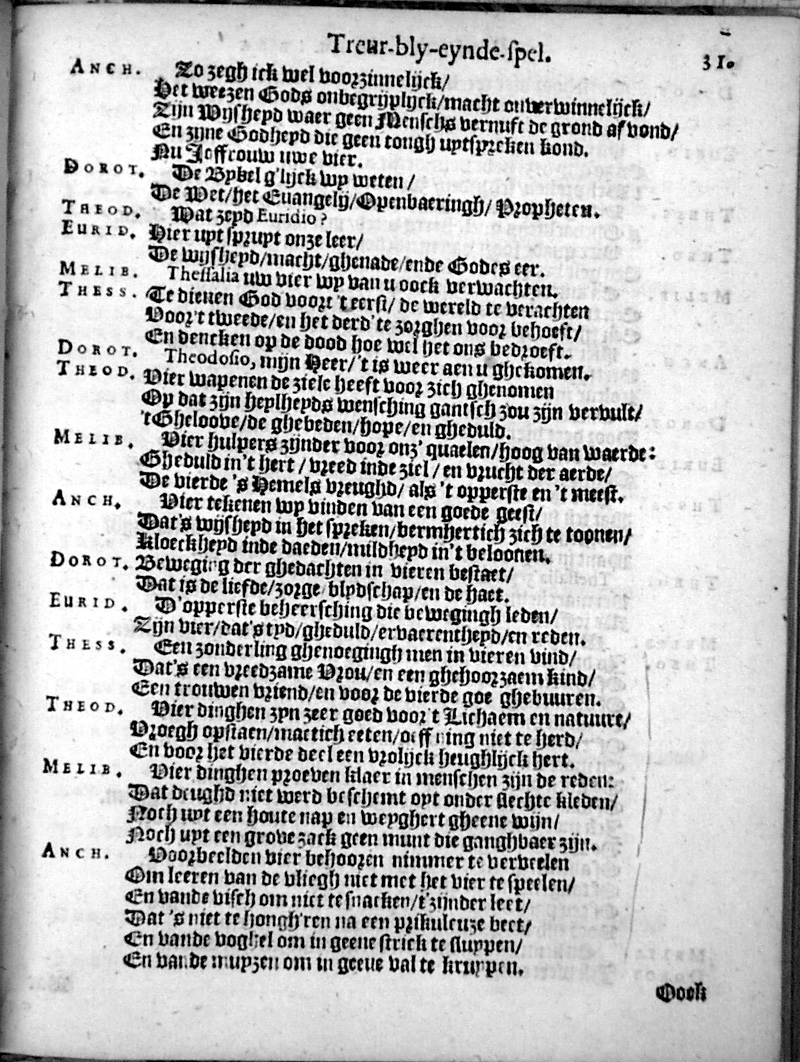 Treur-bly-eynde-spel. 31.
ANCH. Zo zegh ick wel voorzinnelijck/
Het weezen Gods onbegrijplijck/macht onverwinnelijck/
Zijn Wijsheyd waer geen Menschs vernuft de grond af vond/
En zijne Godheyd die geen tongh uytspreken kond.
Nu Joffrouw uwe vier.
DOROT. De Bybel g'lijck wy weten/
De Wet/het Euangelij/Openbaeringh/Propheten.
THEOD. Wat zeyd Euridio?
EURID. Hier uyt spruyt onze leer/
De wijsheyd/macht/ghenade/ende Godes eer.
MELIB. Thessalia uw vier wy van u oock verwachten.
THESS. Te dienen God voor 't eerst/de wereld te verachten
Voor 't tweede/en het derd' te zorghen voor behoeft/
En dencken op de dood hoe wel het ons bedroeft.
DOROT. Theodosio, mijn Heer/'t is weer aen u ghekomen.
THEOD. Vier wapenen de ziele heeft voor zich ghenomen
Op dat zijn heylheyds wensching gantsch zou zijn vervult/
't Gheloove/de ghebeden/hope/en gheduld.
MELIB. Vier hulpers zijnder voor onz' quaelen/hoog van waerde:
Gheduld in 't hert/vreed inde ziel/en vrucht der aerde/
De vierde 's Hemels vreughd/als 't opperste en 't meest.
ANCH. Vier tekenen wy vinden van een goede geest/
Dat's wijsheyd in het spreken/bermhertich zich te toonen/
Kloeckheyd inde daeden/mildheyd in 't beloonen.
DOROT. Beweging der ghedachten in vieren bestaet/
Dat is de liefde/zorge/blydschap/en de haet.
EURID. D'opperste beheersching die bewegingh leden/
Zijn vier/dat's tyd/gheduld/ervaerentheyd/en reden.
THESS. Een zonderling ghenoegingh men in vieren vind/
Dat's een vreedzame Vrou/en een ghehoorzaem kind/
Een trouwen vriend/en voor de vierde goe ghebuuren.
THEOD. Vier dinghen zyn zeer goed voor 't Lichaem en natuure/
Vroegh opstaen/maetich eeten/oeffning niet te herd/
En voor het vierde deel een vrolijck heughlijck hert.
MELIB. Vier dinghen proeven klaer in menschen zijn de reden:
Dat deughd niet werd beschemt oyt onder slechte kleden/
Noch uyt een houte nap en weyghert gheene wijn/
Noch uyt een grove zack geen munt die ganghbaer zijn.
ANCH. Voorbeelden vier behooren nimmer te verveelen
Om leeren van de vliegh niet met het vier te speelen/
En vande visch om niet te snacken/t'zijnder leet/
Dat 's niet te hongh'ren na een prikuleuze beet/
En vande voghel om in geene strick te sluppen/
En vande muyzen om in geene val te kruypen.
Oock